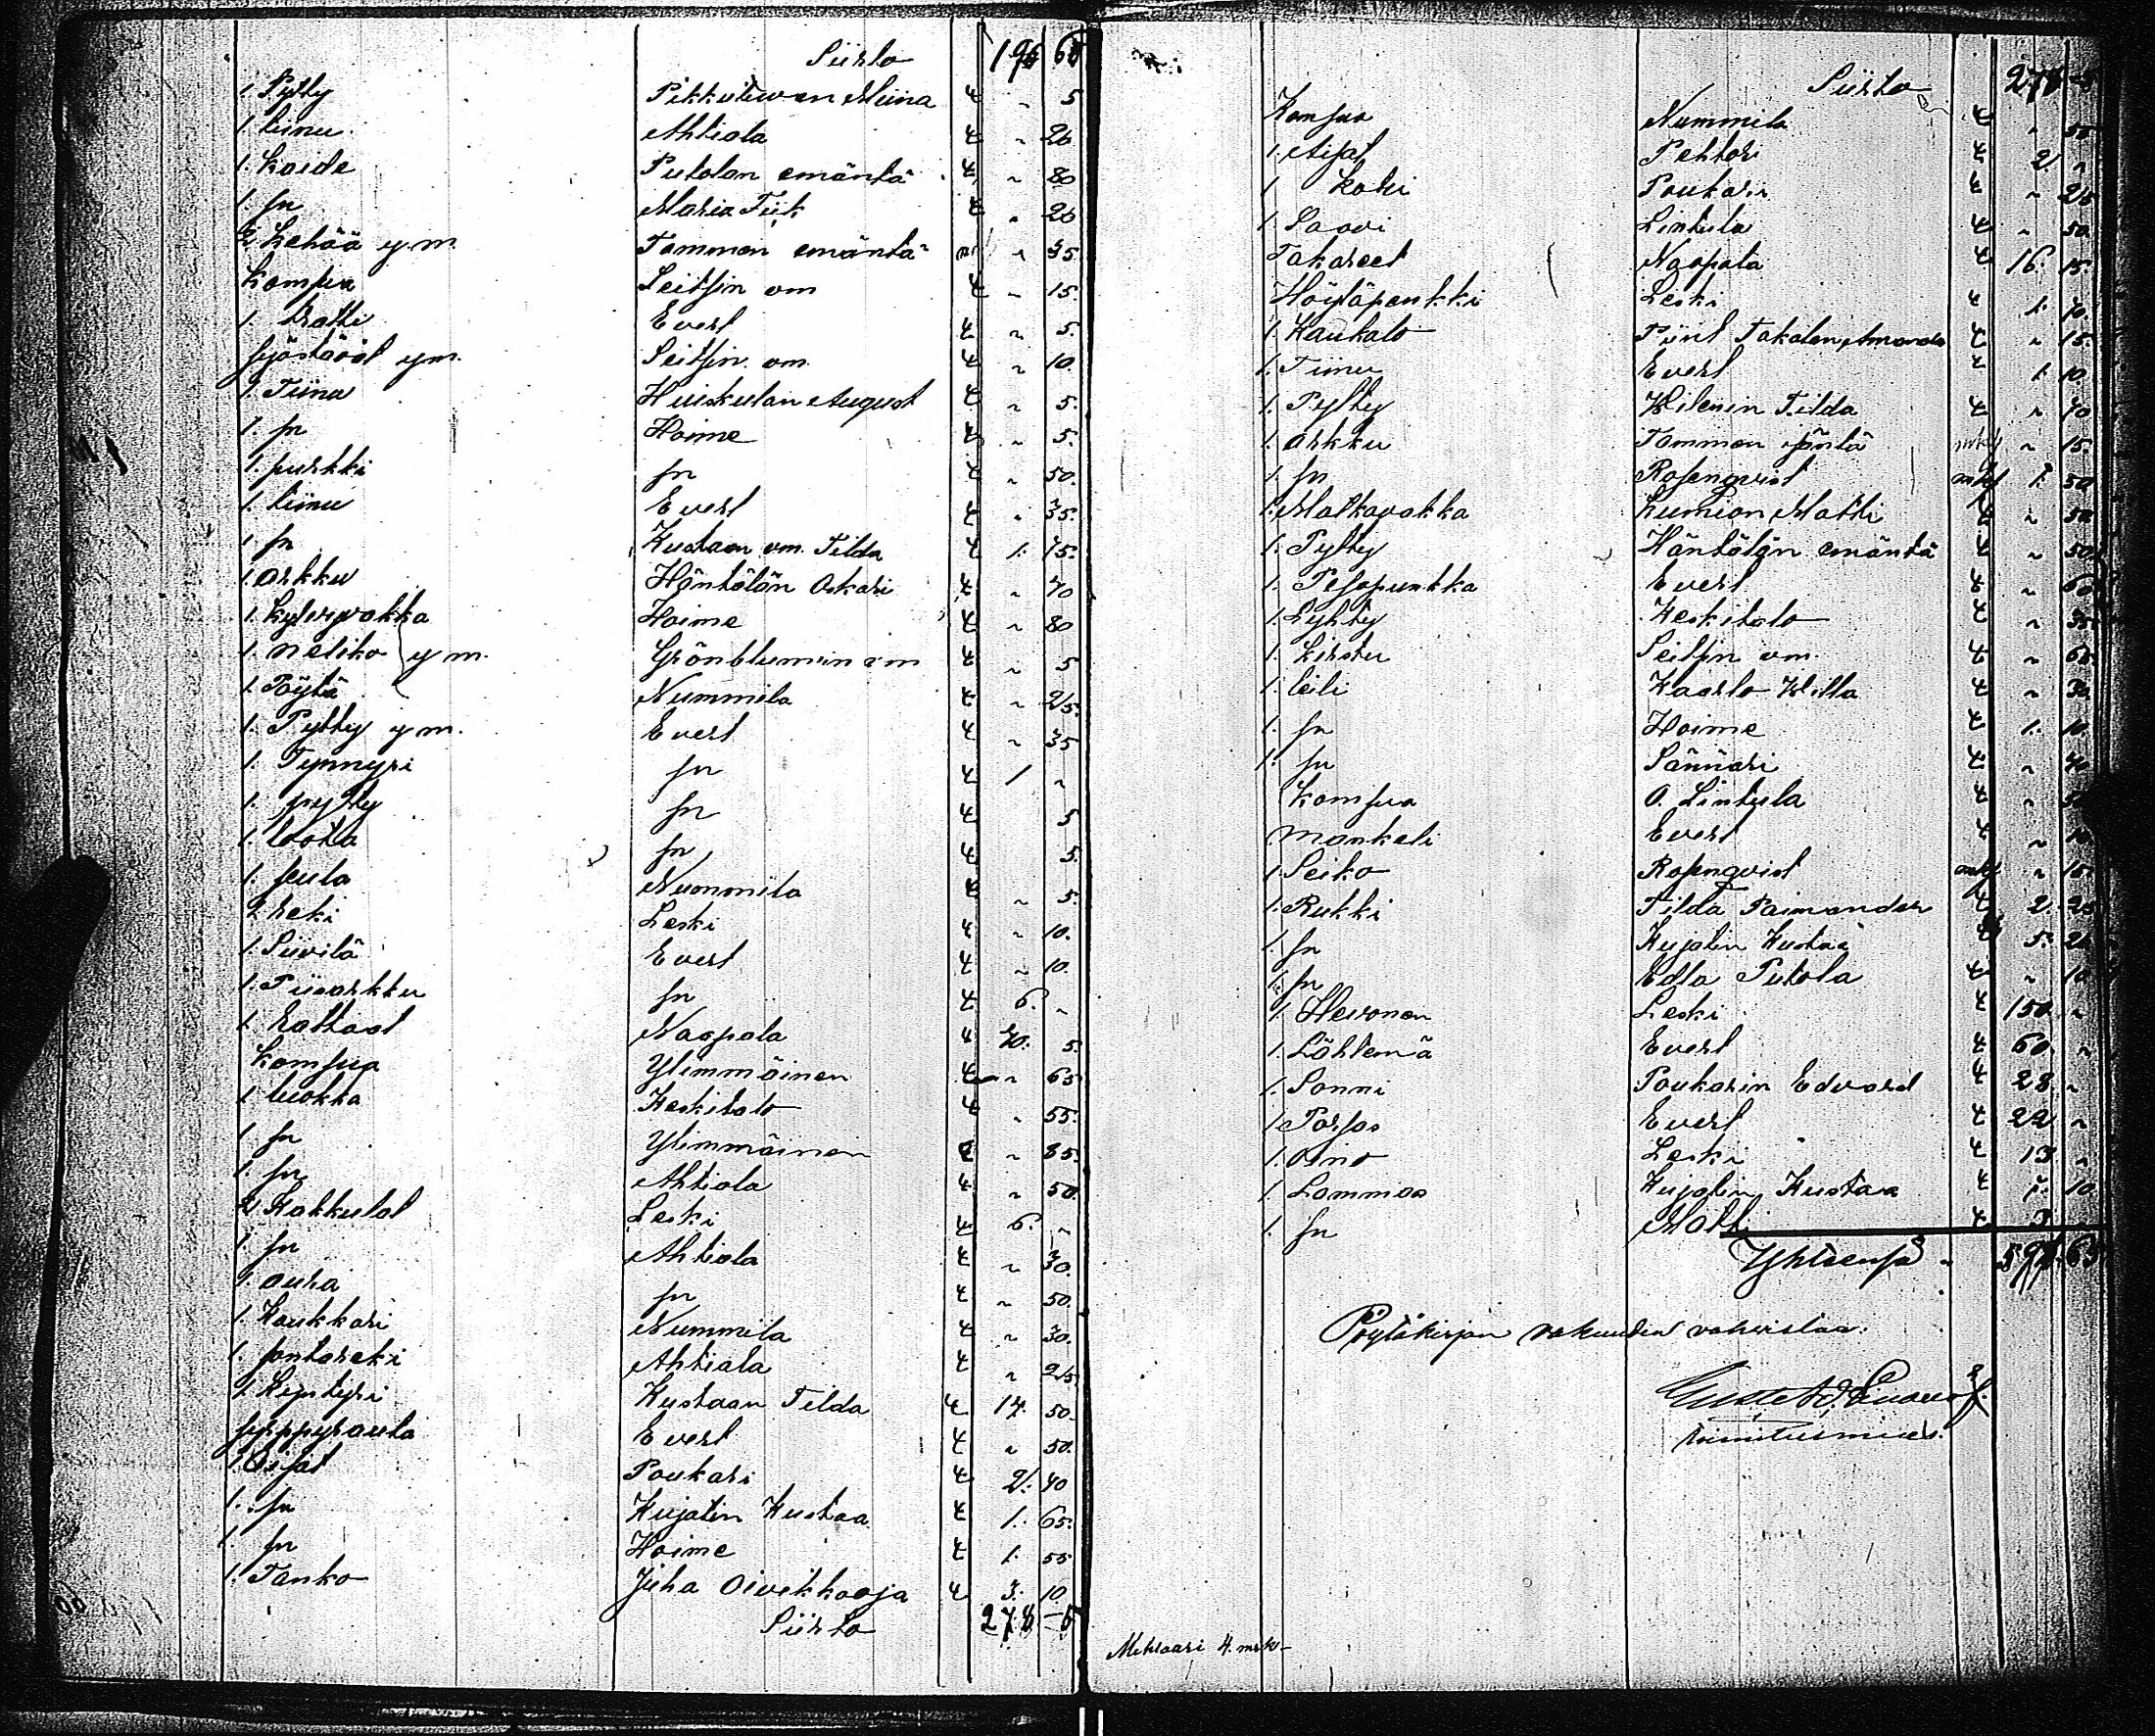 Siirto 196 65
1 Pytty Pikkuliwan Miina 4 " 5
1. tiinu Ahtiala 4 " 26
1. Kaide Putolan emäntä 4 " 80
1 sn Maria Tiik 4 " 26
2 Lehää y.m. Tammen emäntä " 35
Kompua Seitsin om 4 " 15.
1. Evert 4 " 5.
ym. Seitsin om. 4 " 10.
1. Tiinu Huiskulan August 4 " 5.
1. sn Hoime 4 " 5.
1. purkki sn 4 " 50.
1. tiinu Evert 4 " 35.
1 sn Kustaan om. Tilda 4 1. 45.
1. arkku Häntälän Oskari 4 " 70
1. Kylvyvakka Hoime 4 " 80
1. neliko y m. Grönblumin om 4 " 5
1. Pöytä Nummila 4 " 25.
1. Pytty ym. Evert 4 " 35
1. Tynnyri sn 4 1 "
1. pytty sn 4 5
1. sn 4 5.
1. seula Nummila 4 " 5.
2 reki Leski 4 " 10.
1. Siivilä Evert 4 " 10.
1. Piiarkku sn 4 6. "
1. Rattaat Naapala 4 5.
Kompua Ylimmäinen 4 " 65
1. luokka Keskitalo 4 " 55.
1 sn Ylimmäinen " 35.
1. sn Ahtiala 4 " 50.
2 Kakkulat Leski 4 6. "
1. sn Ahtiala 4 " 30.
1. aura sn 4 " 50.
1. Koukkari Nummila 4 " 30.
1. santareki Ahtiala 4 " 25.
1. Kyntyri Kustaan Tilda 4 14. 50
Evert 4 " 50.
1. Aisat Poukari 4 2. 40
1. sn Kujatin Kustaa 4 1. 65.
1. sn Hoime 4 1. 55
1. Tanko Juha Oivikkaoja 4 3. 10
Siirto 278 - 5

Siirto 278 - 5
Kompua Nummila 4 " 50
1. Aisat Pehtori 4 2 "
1 Poukari 4 " 25
1. Saavi Lintula 4 " 50
Takareet Naapala 4 16. 15.
Höyläpenkki Leski 4 1. 70.
1. Kaukalo Piint Takalan Amanda 4 " 15.
1. Tiinu Evert 4 1. 10.
1. Pytty Wilenin Tilda 4 " 70
1. arkku Tammen isäntä " 15.
1. sn Rosenqvist 1. 50
1. Matkavakka Lumion Matti 4 " 50
1. Pytty Häntälän emäntä 4 " 50
1. Pesopunkka Evert 4 " 60
1. Lyhty Keskitalo 4 " 35
1. Kirstu Seitsin om. 4 " 65
1. leili Kaarlo Willa 4 "
1. sn Hoime 4 1. 10.
1. sn Sännäri 4 " 70
Kompua O. Lintula 4 "
Mankeli Evert 4 " 10
1 Seiko Rosenqvist " 15.
1. Rukki Tilda Paimander 4 2. 25
1. sn Kujatin Kustaa 5. 25
1. sn Edla Putola 4 " 10
1. Hewonen Leski 4 150. "
1. Lähtemä Evert 4 60. "
1. Sonni Poukarin Edvard 4 28 "
1 Porsas Evert 4 22 "
1. Oino Leski 4 13. "
1. Lammas Kujatin Kustaa 4 10
1. sn Matti 4
Yhteensä 65
Pöytäkirjan vakuuden vahvistaa.
toimitusmies.
Mehtaari 4. mrk -